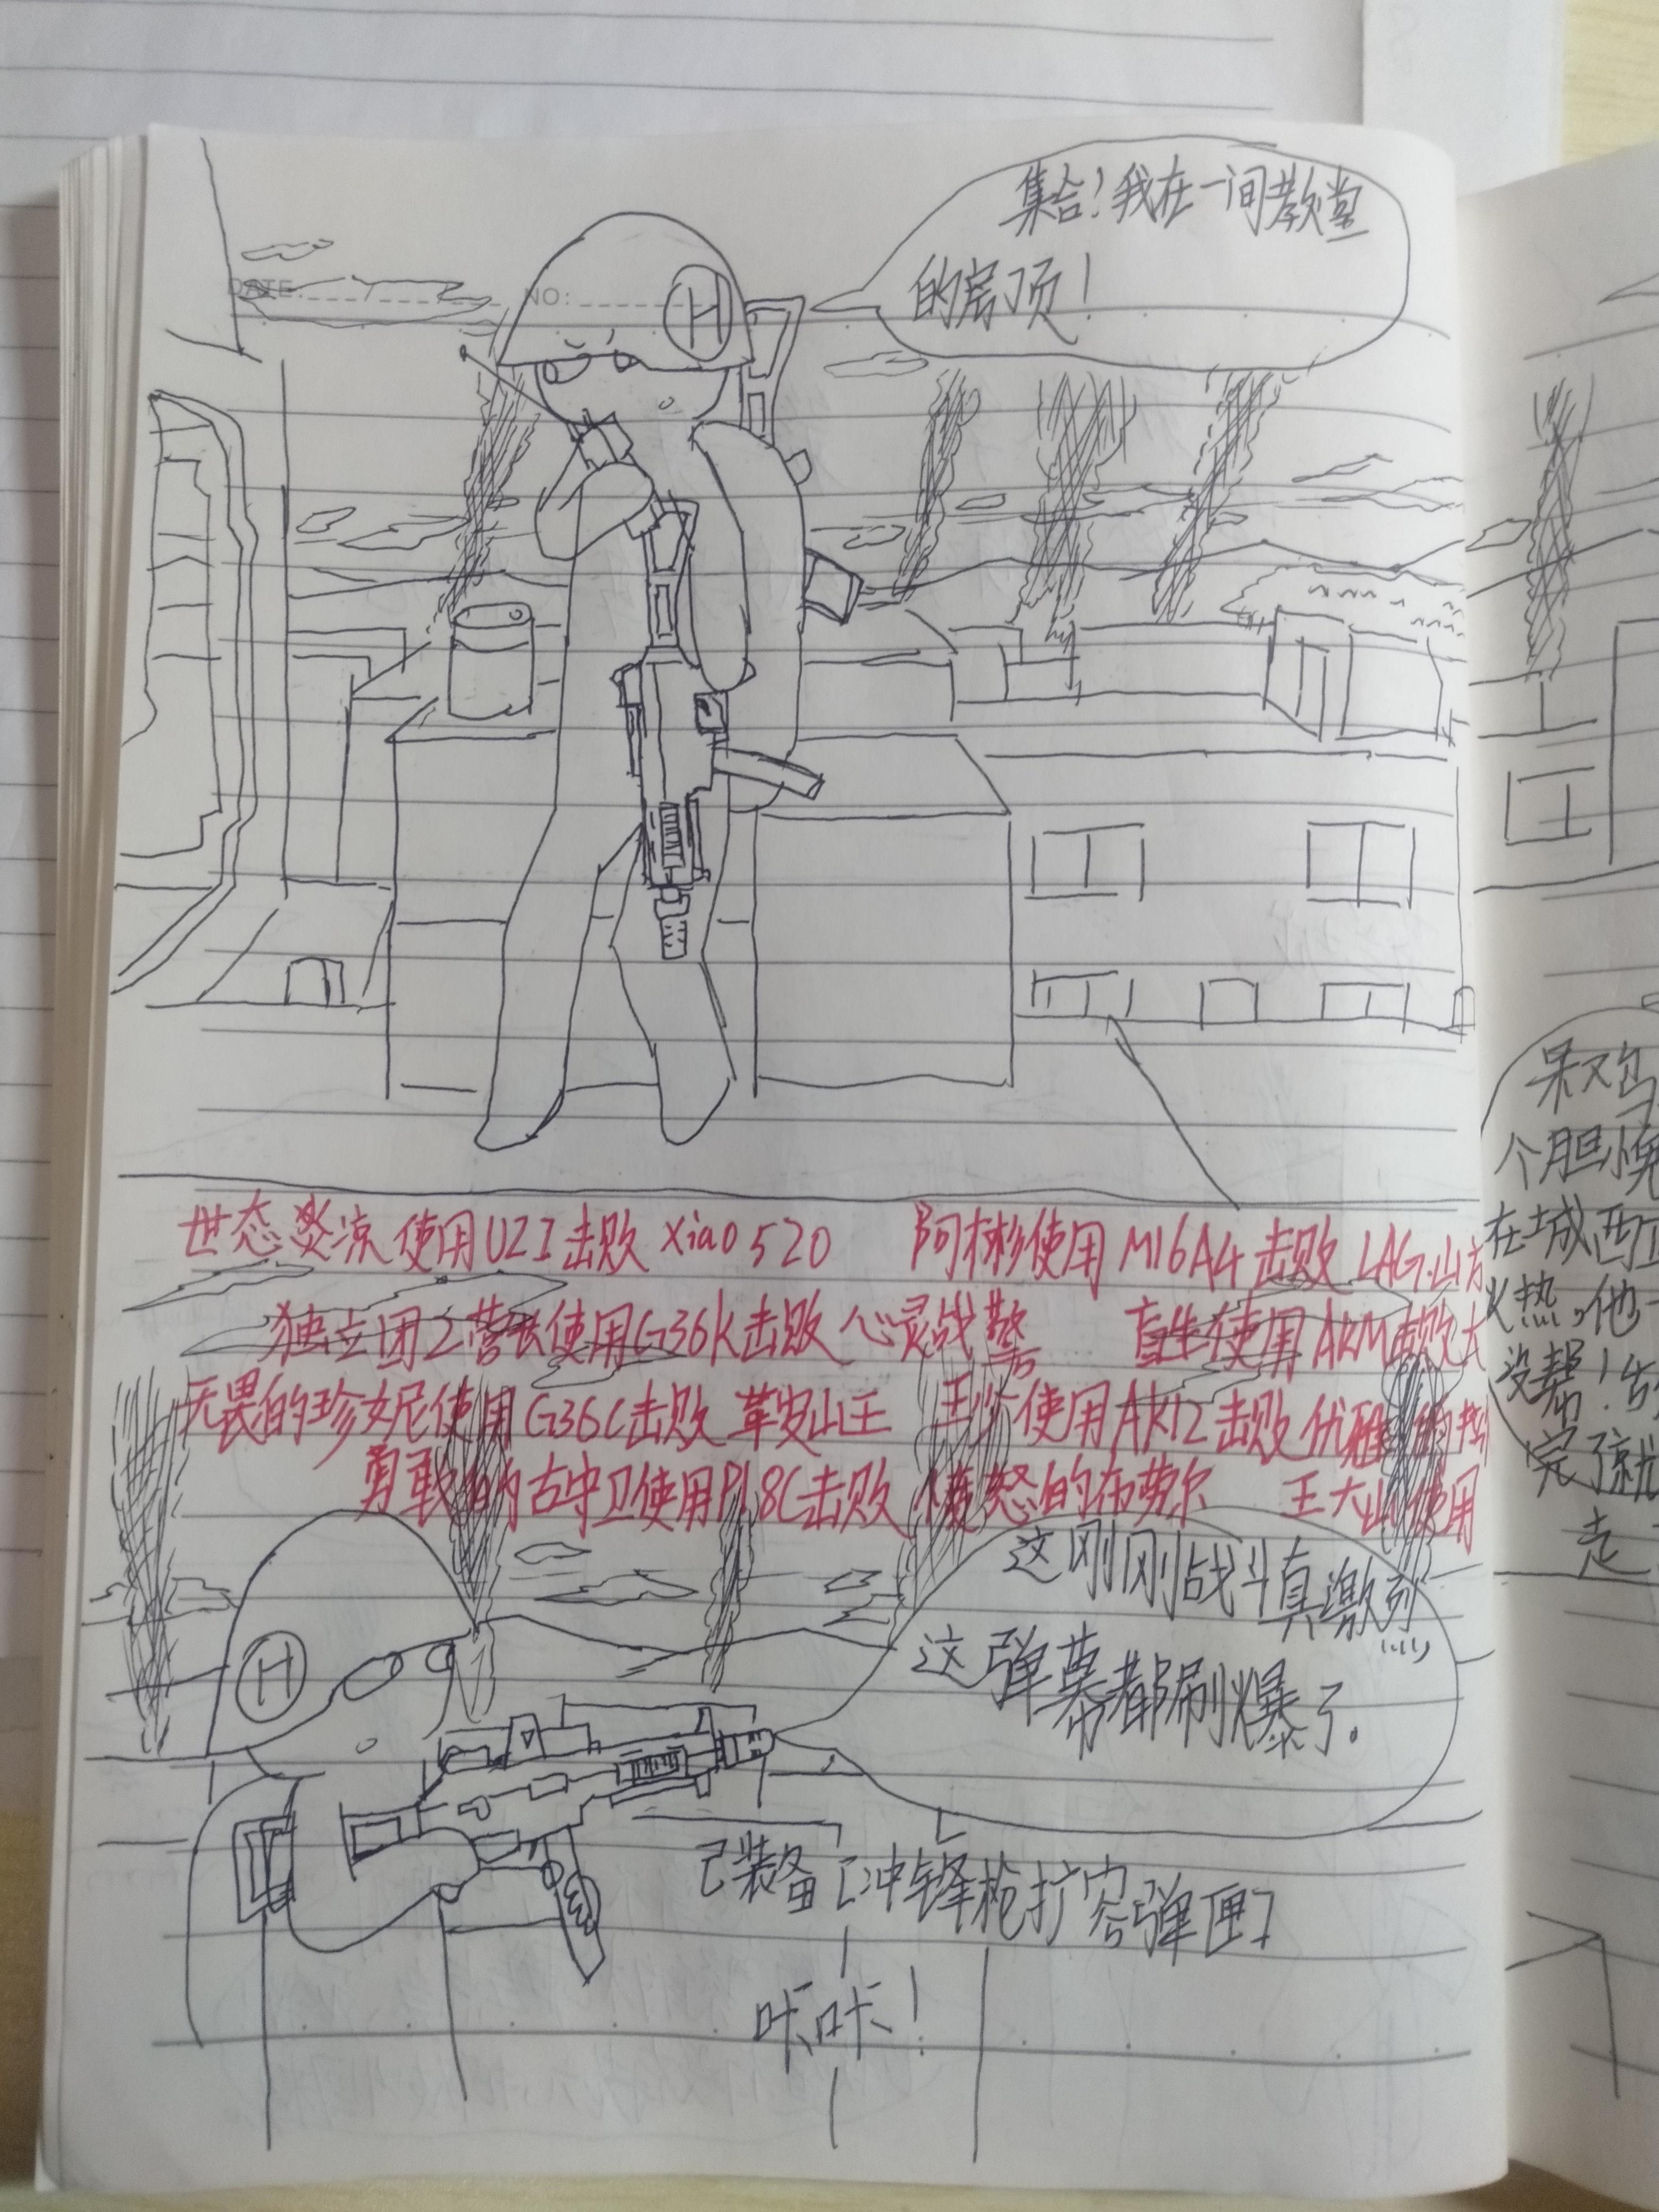 DATE:
NO:
集合！我在一间教堂
的房顶！
H
世态炎凉使用UZI击败 Xiao520 阿彬使用M16A4击败 LAG.山
独立团2营长使用G36K击败 心灵战警 使用AKM击败大
无畏的珍妮使用G36C击败 革安山王 使用AK12击败优雅的
勇敢的古守卫使用PL8C击败 愤怒的布劳尔 王大山使用
这刚刚战斗真激烈，
这弹幕都刷爆了。
H
已装备［冲锋枪扩容弹匣］
咔咔！
呆又鸟
个胆小鬼
在城西
火热，他
没帮！
完了就
走